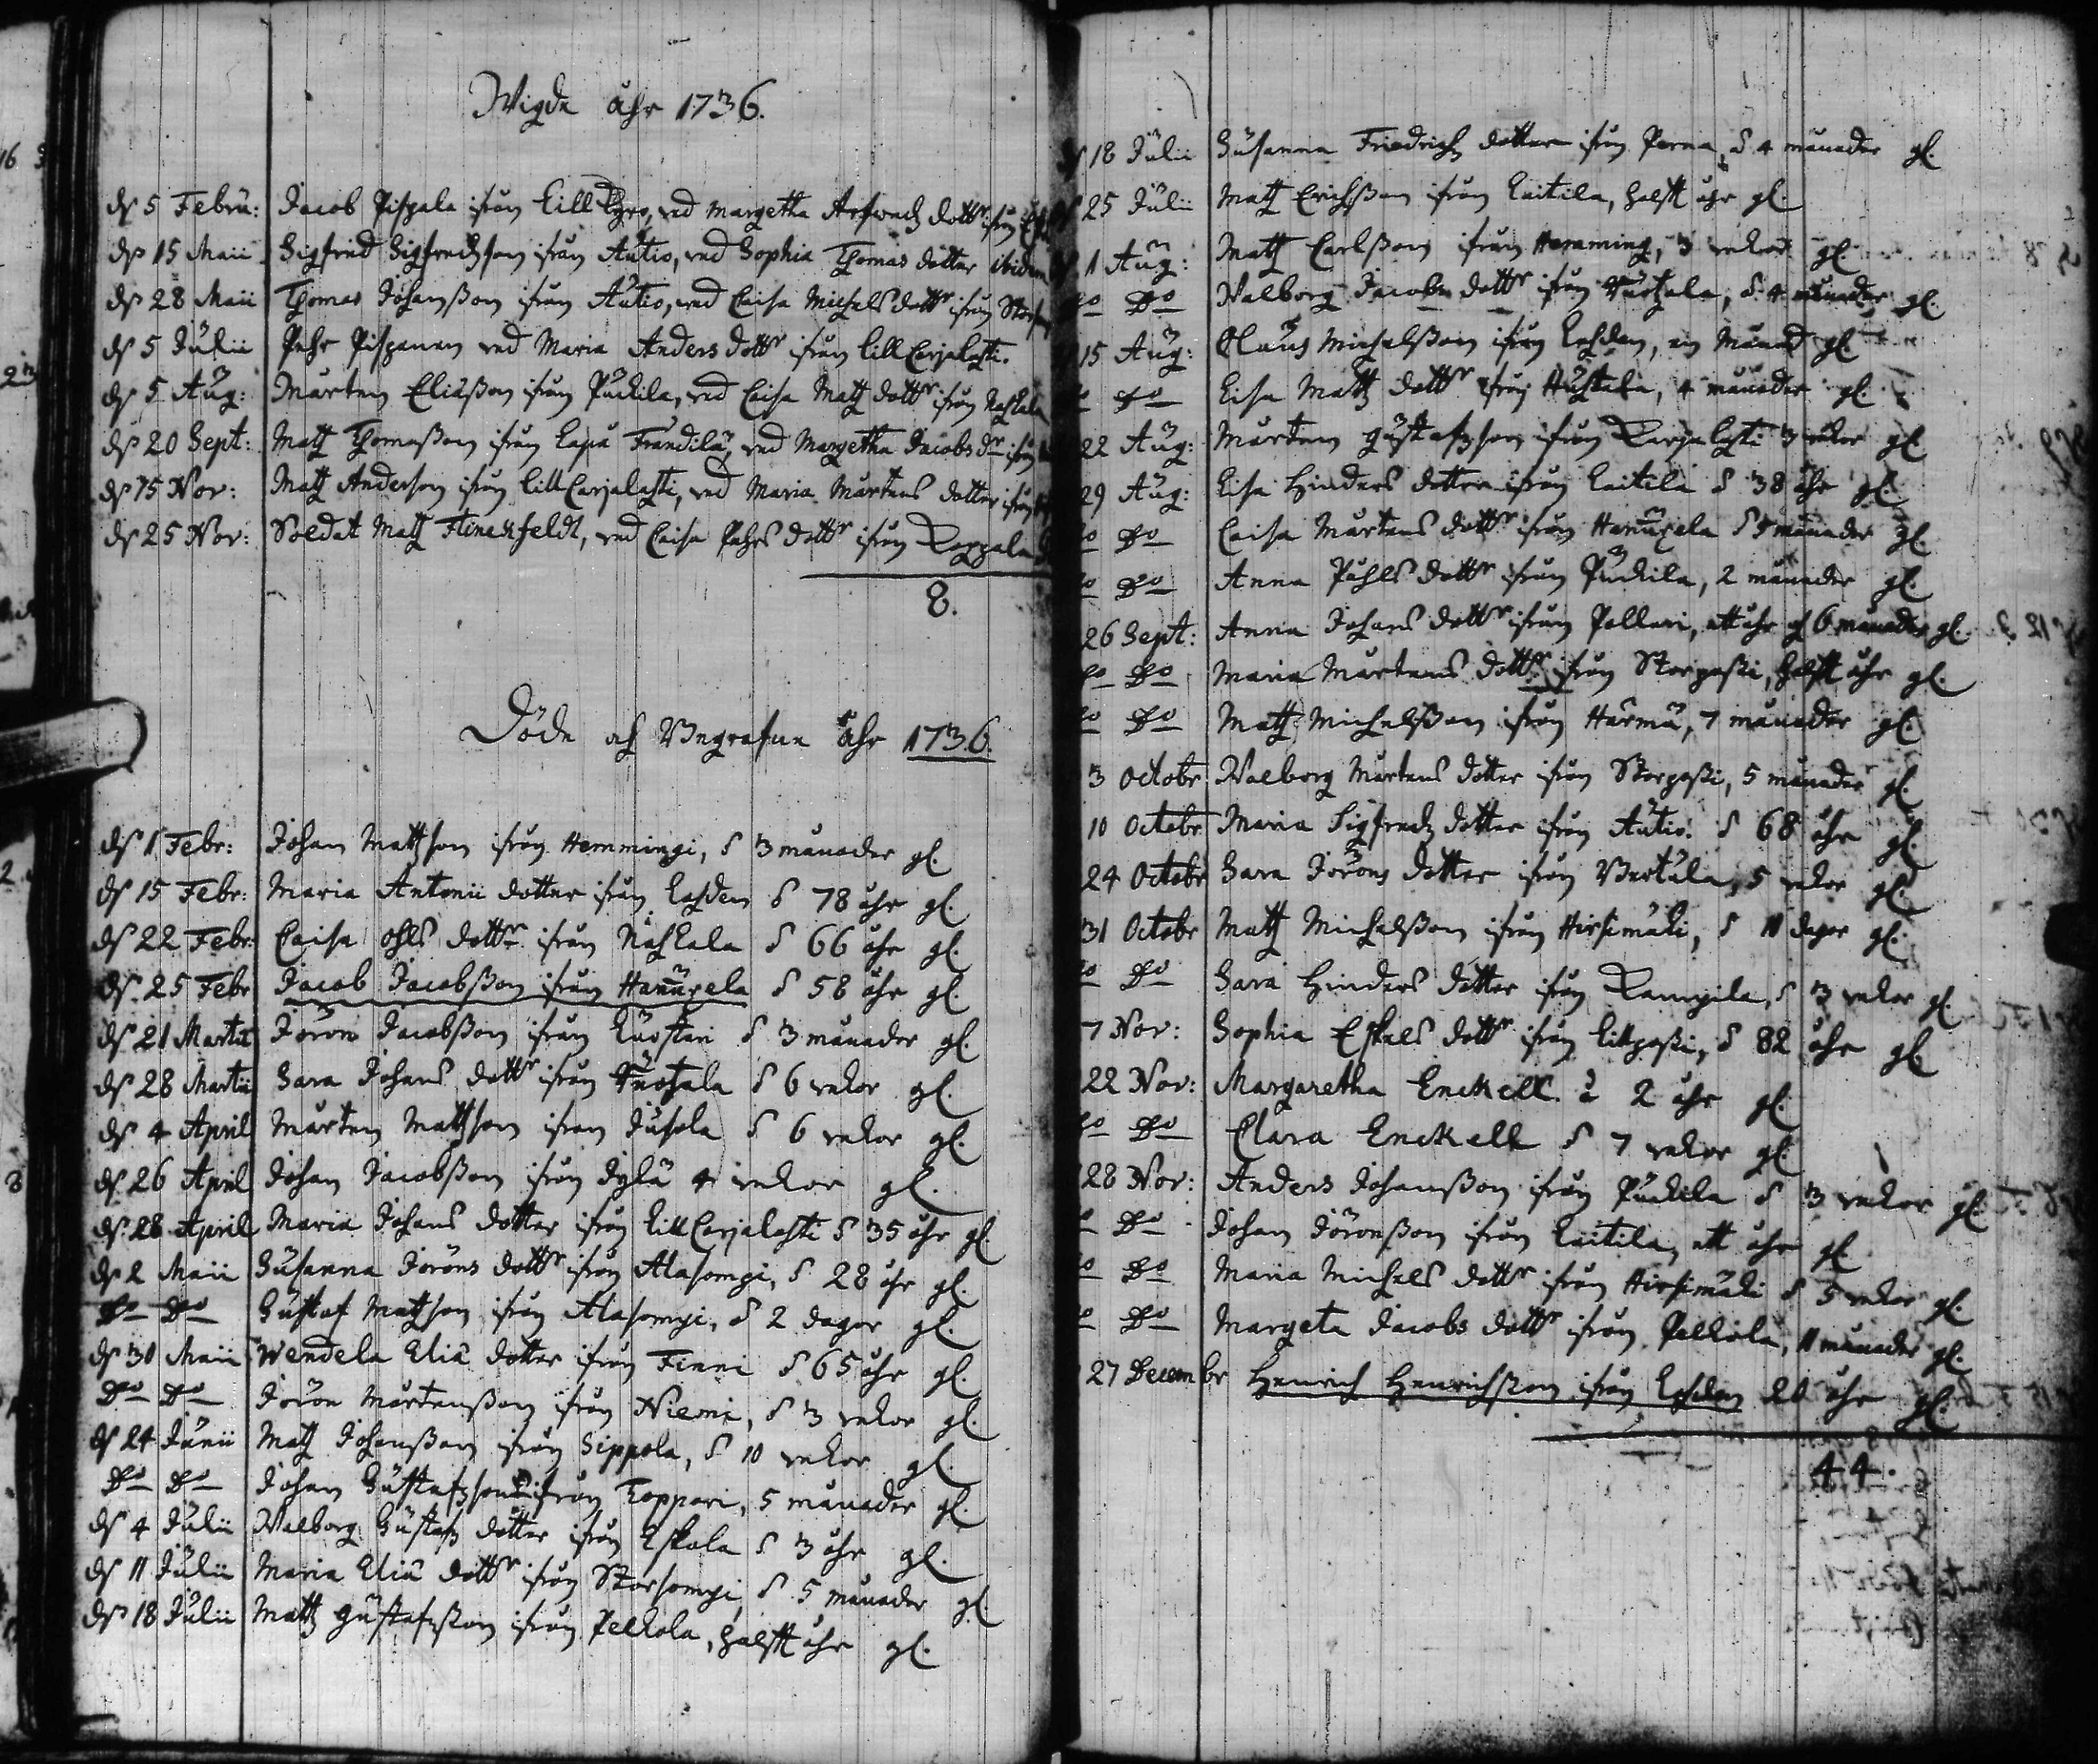 Wigde åhr 1736.
ds 5 Febru: Jacob Pispala ifrån Lill Kyro, wed Margetha Arfweds dottr ifrån
ds 15 Maii Sigfred Sigfredsson ifrån Autio, wed Sophia Thomas dotter ibidem
ds 28 Maii Thomas Johansson ifrån Autio, wed Caisa Michels dottr ifrån
ds 5 Julii Pehr Pispanen wed Maria Anders dottr ifrån Lill Carjalahti.
ds 5 Aug: Mårten Eliasson ifrån Puckila, wed Caisa Matts dottr ifrån Nahkala
ds 20 Sept: Matts Thomasson ifrån Lapu Frändilä, wed Margetha Jacobs dr ifrån
ds 15 Nov: Matts Andersson ifrån Lill Carjalahti, wed Maria Mårtens dotter ifrån
ds 25 Nov: Soldat Matts Flinckfeldt, wed Caisa Pehrs dottr ifrån
8.
Döde och Begrafne Åhr 1736.
ds 1 Febr: Johan Mattsson ifrån Hemmingi, å 3 månader gl.
ds 15 Febr: Maria Antonii dotter ifrån Lahden å 78 åhr gl.
ds 22 Febr: Caisa Ohls dottr ifrån Nahkala å 66 åhr gl.
ds 25 Febr Jacob Jacobsson ifrån Hanuxela å 58 åhr gl.
ds 21 Martii Jöron Jacobsson ifrån Luostari å 3 månader gl.
ds 28 Martii Sara Johans dottr ifrån å 6 wekor gl.
ds 4 April Mårten Mattsson ifrån Jusola å 6 wekor gl.
ds 26 April Johan Jacobsson ifrån Jylä 4 wekor gl.
ds 28 April Maria Johans dotter ifrån Lill Carjalahti å 35 åhr gl
ds 2 Maii Susanna Jöröns dottr ifrån Alasompi, å 28 åhr gl.
Do Do Gustaf Mattsson ifrån Alasompi, å 2 dagar gl.
ds 30 Maii Wendela Eliæ dotter ifrån Finni å 65 åhr gl.
Do Do Jöron Mårtensson ifrån Niemi, å 3 wekor gl.
ds 24 Junii Matts Johansson ifrån Sippola, å 10 wekor gl.
Do Do Johan Gustafsson ifrån Toppari, 5 månader gl.
ds 4 Julii Walborg Gustafs dotter ifrån Eskola å 3 åhr gl.
ds 11 Julii Maria Eliæ dottr ifrån Storsompi å 5 månader gl.
ds 18 Julii Matts Gustafsson ifrån Pelkola, halft åhr gl.
ds 18 Julii Susanna Friedrichs dotter ifrån Perna, å 4 månader gl.
25 Julii Matts Erichsson ifrån Laitila, halft åhr gl.
1 Aug: Matts Carlsson ifrån Hemming, 3 wekor gl.
Do Do Walborg Jacobs dottr ifrån å 4 månader gl.
15 Aug: Claus Michelsson ifrån Lahden, en Månad gl.
Do Lisa Matts dottr ifrån 4 månader gl.
22 Aug: Mårten Gustafsson ifrån Karjalahti 3 wekor gl
29 Aug: Lisa Hinders dotter ifrån Laitila å 38 åhr gl.
Do Caisa Mårtens dottr ifrån Hanuxela å 5 månader gl.
Do Anna Påhls dottr ifrån Puckila, 2 månader gl.
26 Sept: Anna Johans dottr ifrån Pollari, ett åhr och 6 månader gl.
Do Do Maria Mårtens dottr ifrån Storpassi, halft åhr gl.
Do Do Matts Michelsson ifrån Härmä, 7 månader gl.
3 Octobr Walborg Mårtens dotter ifrån Storpassi, 5 månader gl.
10 Octobr Maria Sigfreds dotter ifrån Autio å 68 åhr gl.
24 Octobr Sara Jöröns dotter ifrån 5 wekor gl.
31 Octobr Matts Michelsson ifrån Hirsimäki, å 11 dagar gl.
Do Do Sara Hinders dotter ifrån Kampila, å 3 wekor gl.
7 Nov: Sophia Eskels dottr ifrån Lillpassi, å 82 åhr gl
22 Nov: Margaretha Enckell å 2 åhr gl.
Do Do Clara Enckell å 7 wekor gl.
28 Nov: Anders Johansson ifrån Puckila å 3 wekor gl.
Do Johan Jöronsson ifrån Laitila, ett åhr gl
Do Do Maria Michels dottr ifrån Hirsimäki å 5 wekor gl.
Do Margeta Jacobs dottr ifrån Pelkola, 11 månader gl.
27 Decembr Henrich Henrichsson ifrån Lahden 20 åhr gl.
44.